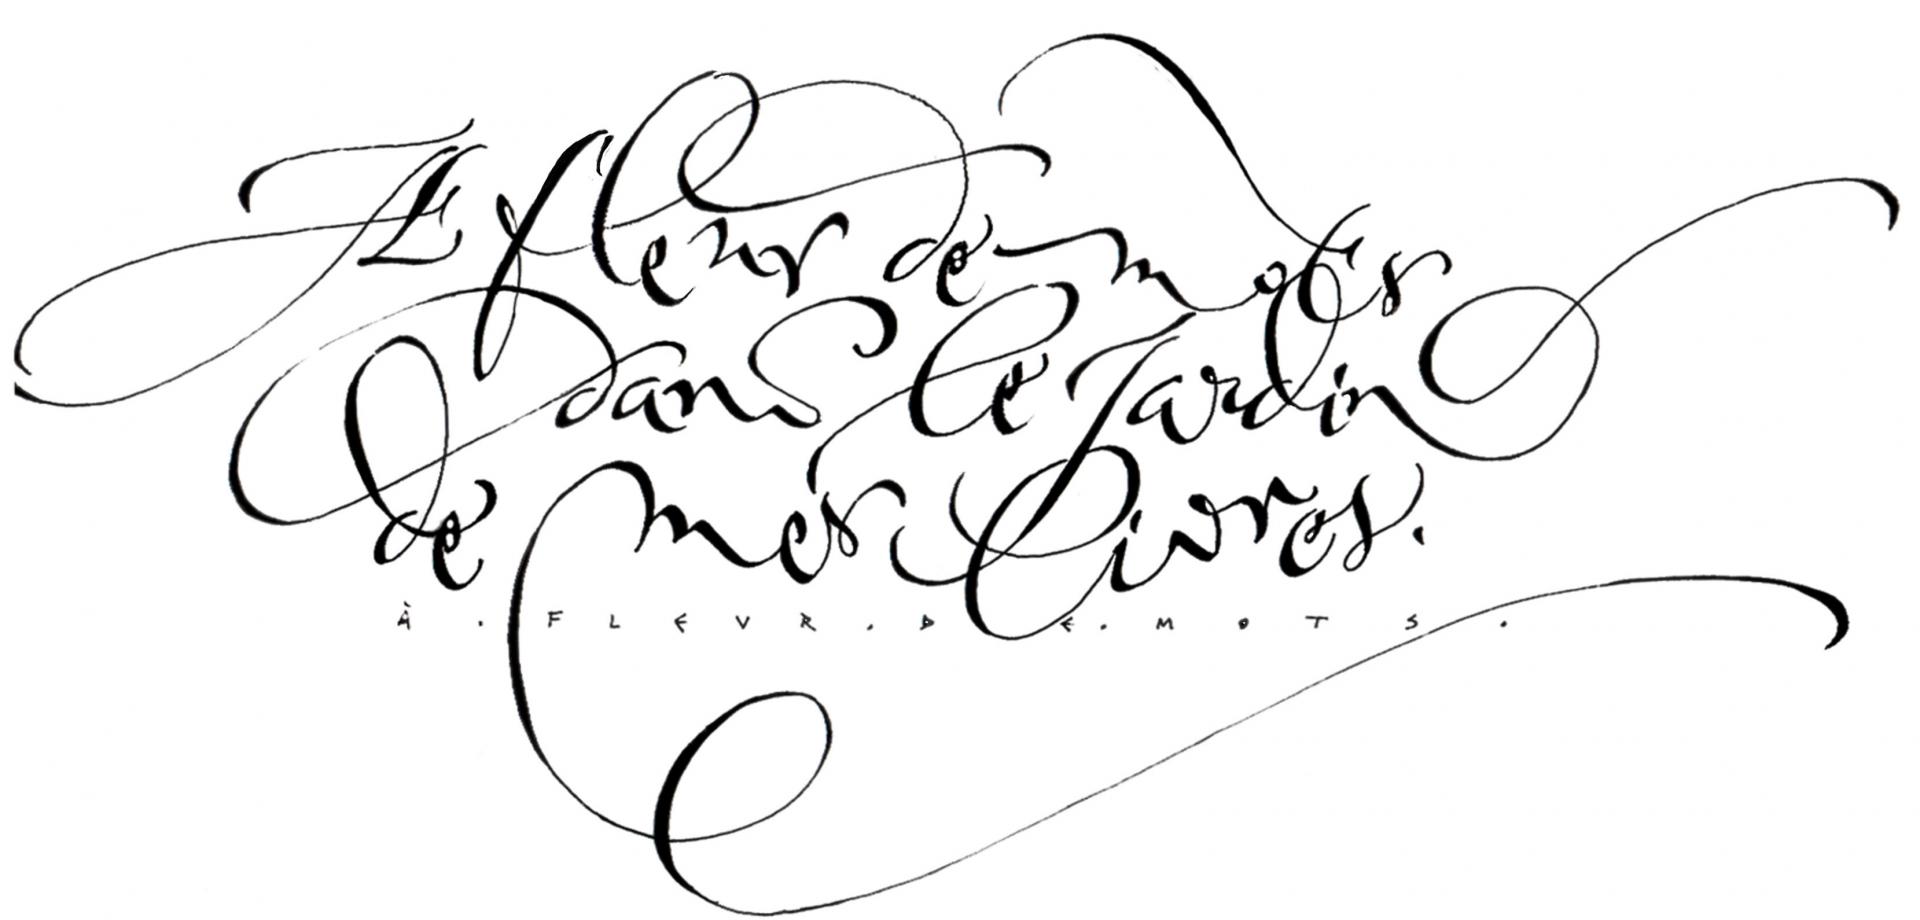 A fleur de mots
dans le Jardin
de mes livres.
À . FLEVR . DE . MOTS .